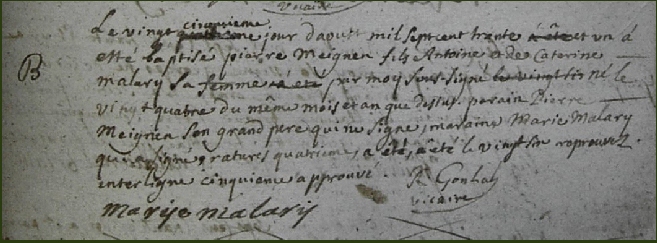 vicaire
Le vingt cinquieme jour daoust mil sept cent trente et un á
B
este baptisé pierre Meignen fils Antoine et de Caterine
malary sa femme par moy sous signé né le
vingt quatre du même mois et an que dessus. parain Pierre
Meignen son grand pere qui ne signe, maraine Marie Malary
qui a signé, ratures quatrieme, a été, a été le vingt reprouvez.
interligne cinquieme approuvé.
vicaire
marye malary